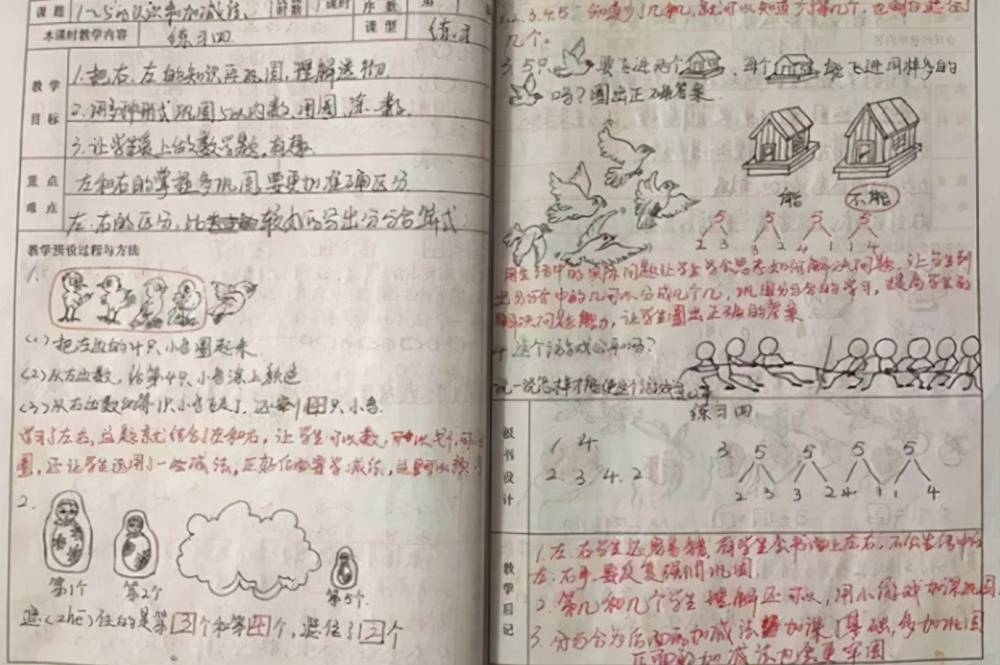 课题 1～5的认识和加减法 课时 课时 序数 第
本课时教学内容 练习四 课型 练习
教学目标
1.把右、左的知识巩固,理解
2.用多种形式巩固5以内数,用圈、涂、数.
3.让学生爱上做数学题,有趣.
重点 左和右的掌握多巩固,要更加准确区分
难点 左、右的区分,比较好的写出分与合算式:
教学预设过程与方法
1.
(1)把左边的4只小鸟圈起来.
(2)从左边数,给第4只小鸟涂上颜色
(3)从右边数的第1只小鸟飞了,还剩4只小鸟.
学习了左右,这题就结合了左和右,让学生可以数,可以划,可
圈,还让学生运用了一些减法,正好后面要学减法,这里可以
2.
第1个 第2个 第5个
遮(zhē)住的是第3个和第4个,遮住了2个
1.2.3.4.5 知道少了几和几,就可以知道少了几个,也就是遮住了
几个。
3.5只 要飞进两个 ,每个 能飞进同样多的
吗?圈出正确答案.
能 不能
5 5 5 5
2 3 3 2 4 1 1 4
用生活中的实际问题让学生学会思考如何解决问题,让学生列
出分与合中的几可以分成几个几,巩固分与合的学习,提高学生的
解决问题能力,让学生圈出正确的答案
4.这个游戏公平吗?
说一说怎样才能使这个游戏公平
练习四
板书设计
1. 4
2. 3. 4. 2
3. 5 5 5 5
2 3 3 2 4 1 1 4
教学日记
1.左、右学生还容易错,有学生会书面上左右,不会生活中的
左、右手要反复强调巩固
2.第几和几个学生理解还可以,用小游戏加深巩固
3.分与合为后面的加减法加深了基础,多加巩固
后面的加减法内容更牢固